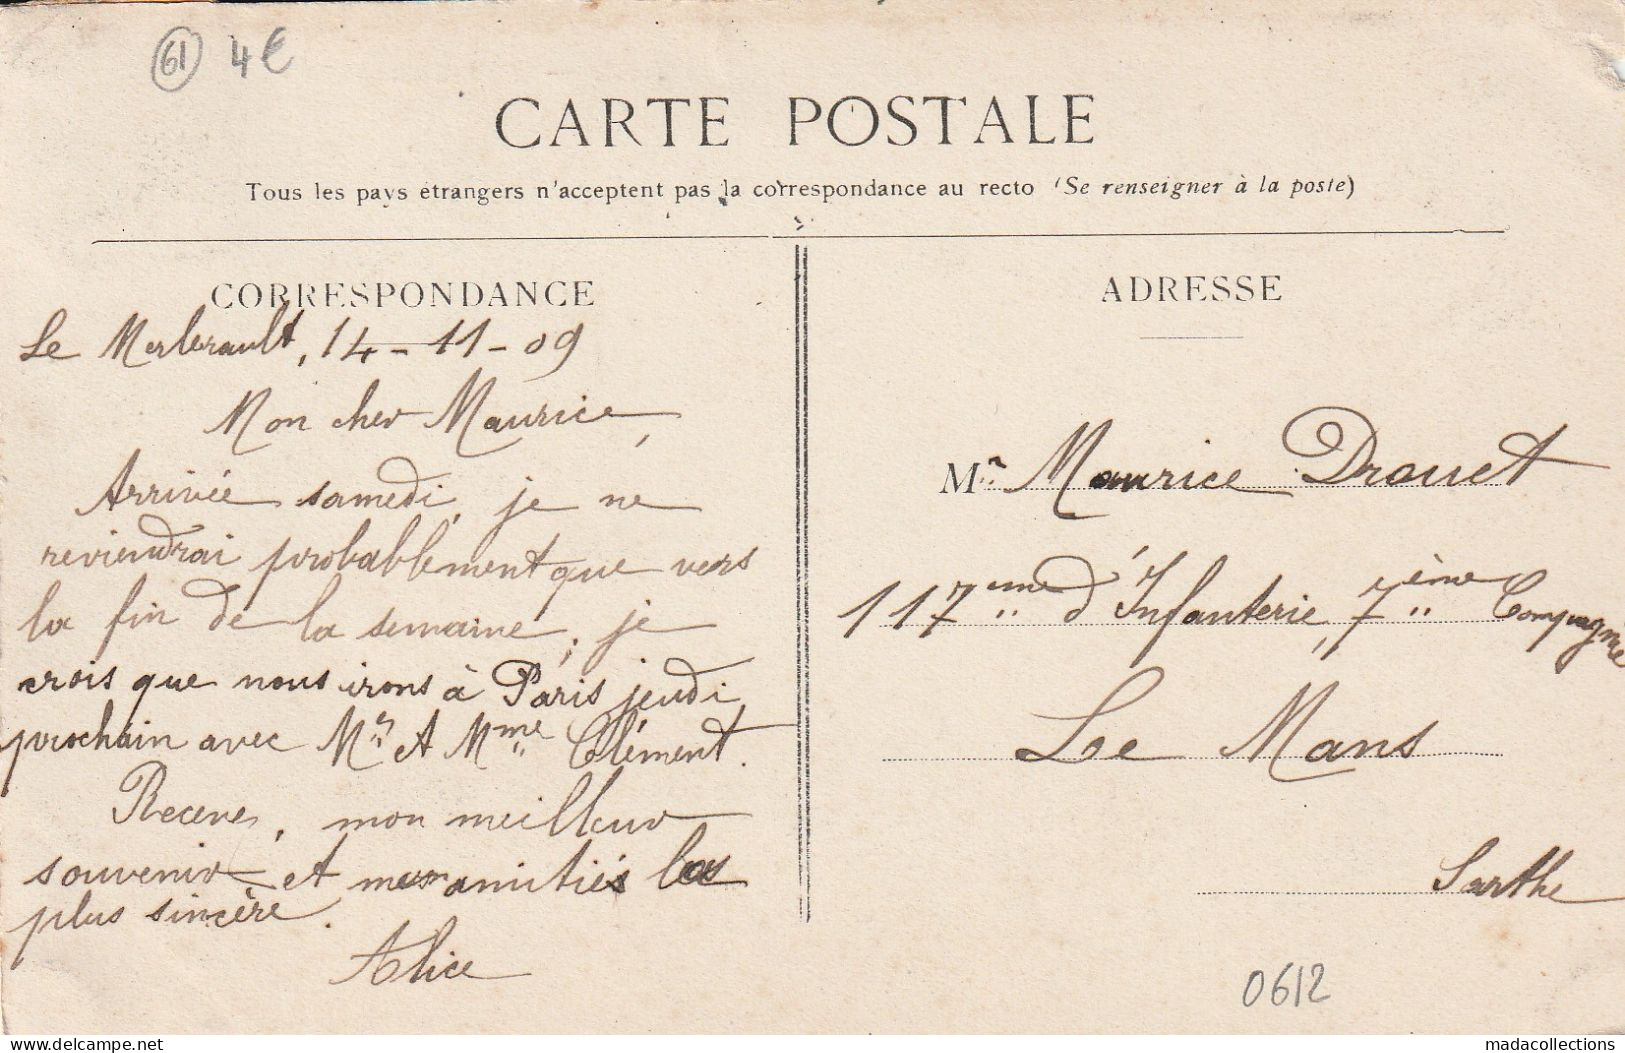 61 4€
CARTE POSTALE
Tous les pays étrangers n'acceptent pas la correspondance au recto (Se renseigner à la poste)
CORRESPONDANCE
Le Merlerault, 14-11-09
Mon cher Maurice,
Arrivée samedi, je ne
reviendrai probablement que vers
la fin de la semaine; je
crois que nous irons à Paris jeudi
prochain avec Mr et Mme Clément.
Recevez, mon meilleur
souvenir et mon amitiés la
plus sincère.
Alice
ADRESSE
Mr Maurice Drouet
117ème d'Infanterie, 7ème Compagnie
Le Mans
Sarthe
0612
www.delcampe.net
madacollections